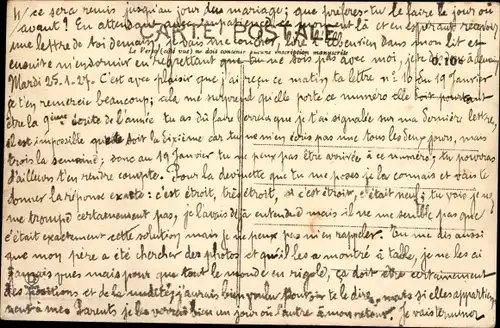 W ce sera remis jusqu'au jour du mariage; que préfères-tu le faire le jour où
avant? En attendant aie de patience ce moment là et en espérant recevoir
CARTE POSTALE
une lettre de toi demain, je vais me coucher, lire le courrier dans mon lit et
ensuite m'endormir en regrettant que tu ne sois pas avec moi, je te
Mardi 25-1-27. C'est avec plaisir que j'ai reçu ce matin ta lettre n° 10 du 19 Janvier
je t'en remercie beaucoup; cela me surprend qu'elle porte ce numéro elle doit pourtant
être la 9ème écrite de l'année tu as dû faire erreur que je t'ai signalée sur ma dernière lettre,
il est impossible que ce soit la dixième car tu ne m'en écris pas une tous les deux jours, mais
trois la semaine; donc au 19 Janvier tu ne peux pas être arrivée à ce numéro; tu pourras
d'ailleurs t'en rendre compte. Pour la devinette que tu me poses je la connais et vais te
donner la réponse exacte: c'est étroit, très étroit, si c'est étroit, c'était neuf; tu vois je ne
me trompe certainement pas, je l'avais déjà entendue mais il ne me semble pas que
c'était exactement cette solution mais je ne peux pas m'en rappeler. Tu me dis aussi
que mon père a été chercher des photos et qu'il les a montré à table, je ne les ai
jamais vues mais pour que tout le monde en rigole, ça doit être certainement
des positions et de la nudité; j'aurais bien voulu pouvoir te le dire, mais si elles appartien
nent à mes Parents je les verrai bien un jour où l'autre à mon retour. Je vais terminer